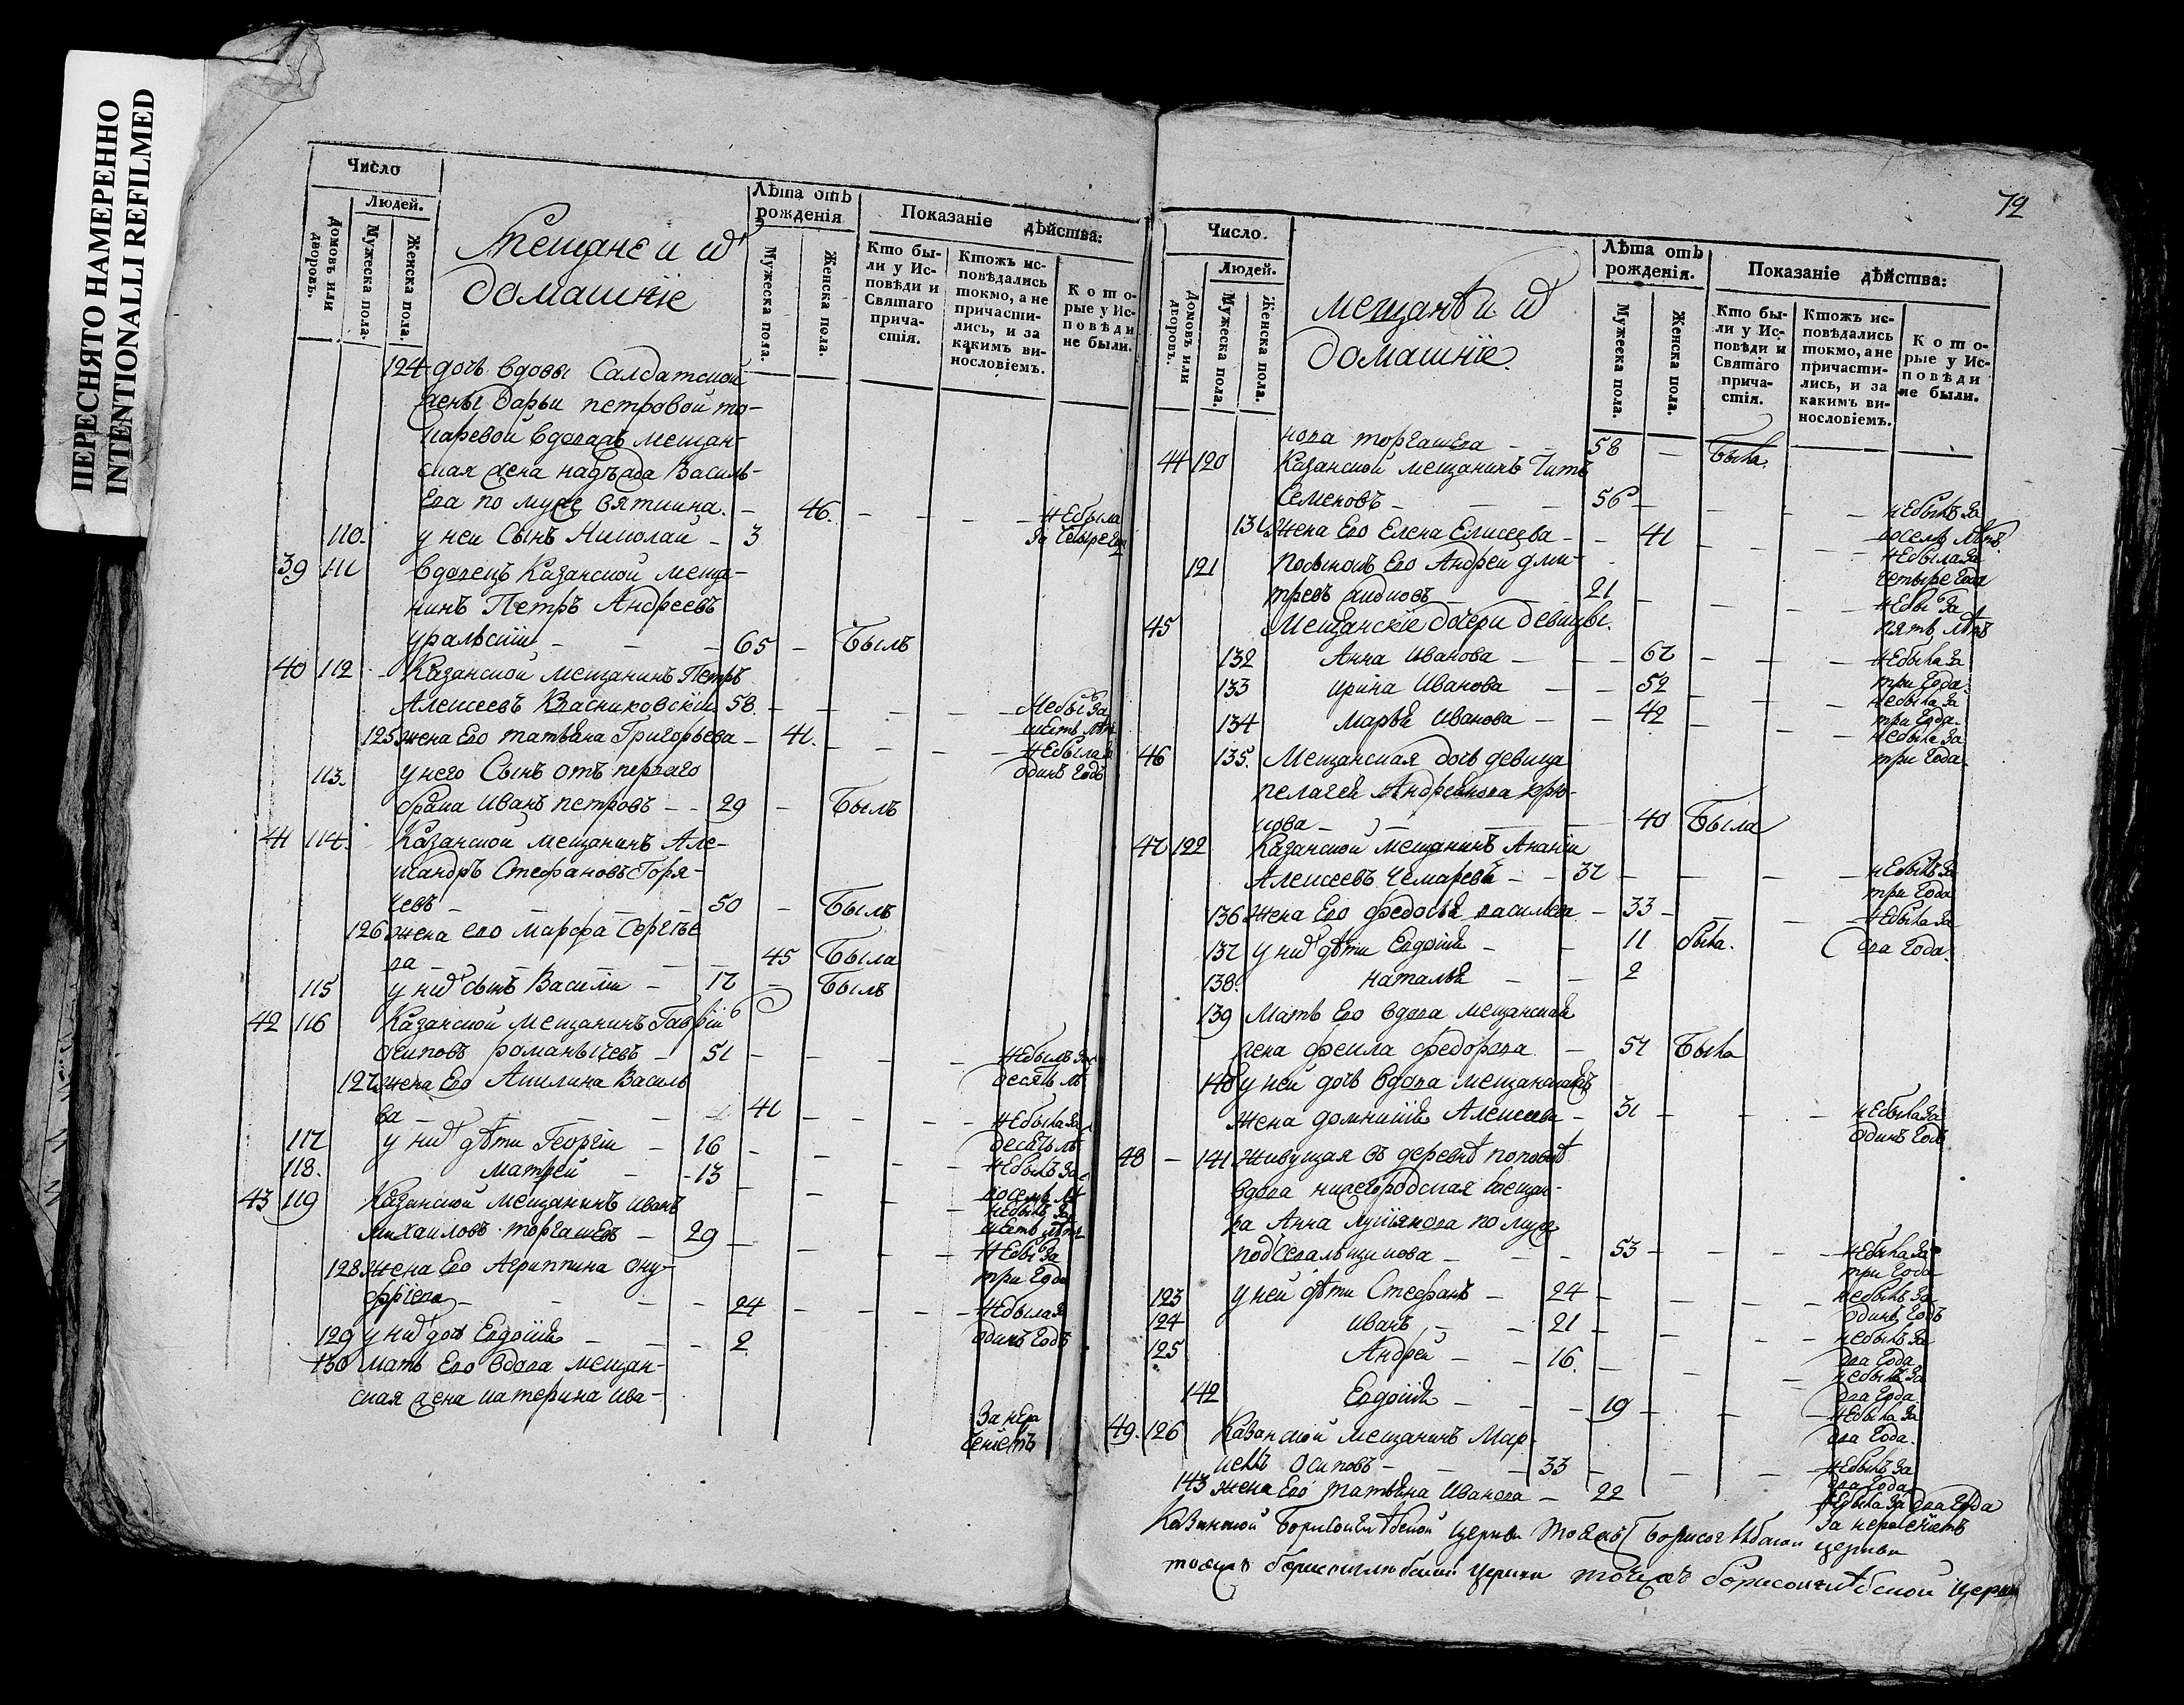 ПЕРЕСНЯТО НАМЕРЕННО
INTENTIONALLI REFILMED
Число
Людей.
Домовъ или дворовъ.
Мужеска пола.
Женска пола.
Мещане и ихъ
домашніе
Лѣта отъ рожденія
Мужеска пола.
Женска пола.
Показаніе дѣйства:
Кто были у Исповѣди и Святаго причастія.
Ктожъ исповѣдались токмо, а не причастились, и за какимъ винословіемъ.
Которые у Исповѣди не были.
124 дочь вдовы Салдатской
жены дарьи петровой то-
каревой вдоважъ мещан-
ская жена надѣжда Василь-
ева по муже вяткина. – 46. – – – – не была
110. у неи Сынъ Николаи – 3 за четыре года
39 111 вдовецъ Казанской меща-
нинъ Петръ Андреевъ
уральскіи – – – 65 – Былъ
40 112 Казанской мещанинъ Петръ
Алексеевъ Квасниковскіи 58. – – – – – не бы за
шесть лѣтъ
125 жена Его татьяна Григорьева – 41. – – – – не была за
одинъ годъ
113. у него Сынъ отъ перваго
брака Иванъ петровъ – – 29 – Былъ
41 114. Казанской мещанинъ Але-
ксандръ Стефановъ Горя-
чевъ – – – – 50 – Былъ
126 жена его марфа Сергѣе
ва – – – – 45 Была
115 у нихъ сынъ Василіи – 17 – Былъ
42 116 Казанской мещанинъ Гавріи
осиповъ романычевъ – 51 – – – – не былъ за
десять лѣ
127 жена Его Акилина Василь
ва – – – – 41 – – – – не была за
десять лѣ
117 у нихъ дѣти Георгіи – 16 – – – не былъ за
восемь лѣ
118. матфеи – – 13 – – – не былъ за
шесть лѣтъ
43 119 Казанской мещанинъ иванъ
михаиловъ торгашевъ – 29 – – – – не бы за
три года
128 жена Его Агрипина ону-
фріева – – – – 24 – – – – не была за
одинъ годъ
129 у нихъ дочь Евдокія – – – 2.
130 мать Его вдова мещан-
ская жена катерина ива-
За нера
ченіемъ
72
Число.
Людей.
Домовъ или дворовъ.
Мужеска пола.
Женска пола.
мещане и ихъ
домашніе.
Лѣта отъ рожденія.
Мужеска пола.
Женска пола.
Показаніе дѣйства:
Кто были у Исповѣди и Святаго причастія.
Ктожъ исповѣдались токмо, а не причастились, и за какимъ винословіемъ.
Которые у Исповѣди не были.
нова торгашева – – 58 – Была.
44 120 Казанской мещанинъ Титъ
Семеновъ – – – – 56 – – – – не былъ за
восемь лѣтъ
131 жена Его Елена Елисеева – – 41 – – – не была за
четыре года
121 Андреи дми-
тревъ – – – – 21 – – – – не бы за
пять лѣтъ
45 Мещанскіе дочери девицы.
132 Анна Иванова – – – 67 – – – не была за
три года.
133 ирина Иванова – – 52 – – – не была за
три года.
134 марья Иванова – – 42 – – – не была за
три года.
46 135. Мещанская дочь девица
пелагея Андреянова крю-
кова – – – – 40 Была
47 122 Казанской мещанинъ Ананіи
Алексеевъ Чемаревъ – – 37 – – – – не былъ за
три года
136 жена Его федосья васильева – 33 – – – не была за
два года.
137 у нихъ дѣти Евдокія – – 11 была.
138. наталья – – 2
139 мать Его вдова мещанская
жена фекла федорова – 57 Была
140 у ней дочь вдова мещанскаяжъ
жена домникія Алексеева – 31 – – – не была за
одинъ годъ
48 – 141 живущая въ деревнѣ поповкѣ
вдова нижегородская мещан-
ка Анна лукіянова по мужу
подсевальщикова – – – 53 – – – не была за
три года
123 у ней дѣти Стефанъ – 24 – – – – не былъ за
одинъ годъ
124 иванъ – – 21 – – – – не былъ за
два года
125 Андреи – – 16. – – – не былъ за
два года
142 Евдокія – – – 19 – – – не была за
два года.
49. 126 Казанской мещанинъ Мар-
келъ осиповъ – – – 33 – – – не былъ за
два года
143 жена Его татьяна Иванова – 22 не была за два года
За нераченіемъ
Казанской Борисоглѣбской церкви тояжъ Борисоглѣбской церкви
тояжъ борисоглебской церкви тоежъ борисоглѣбской церкви